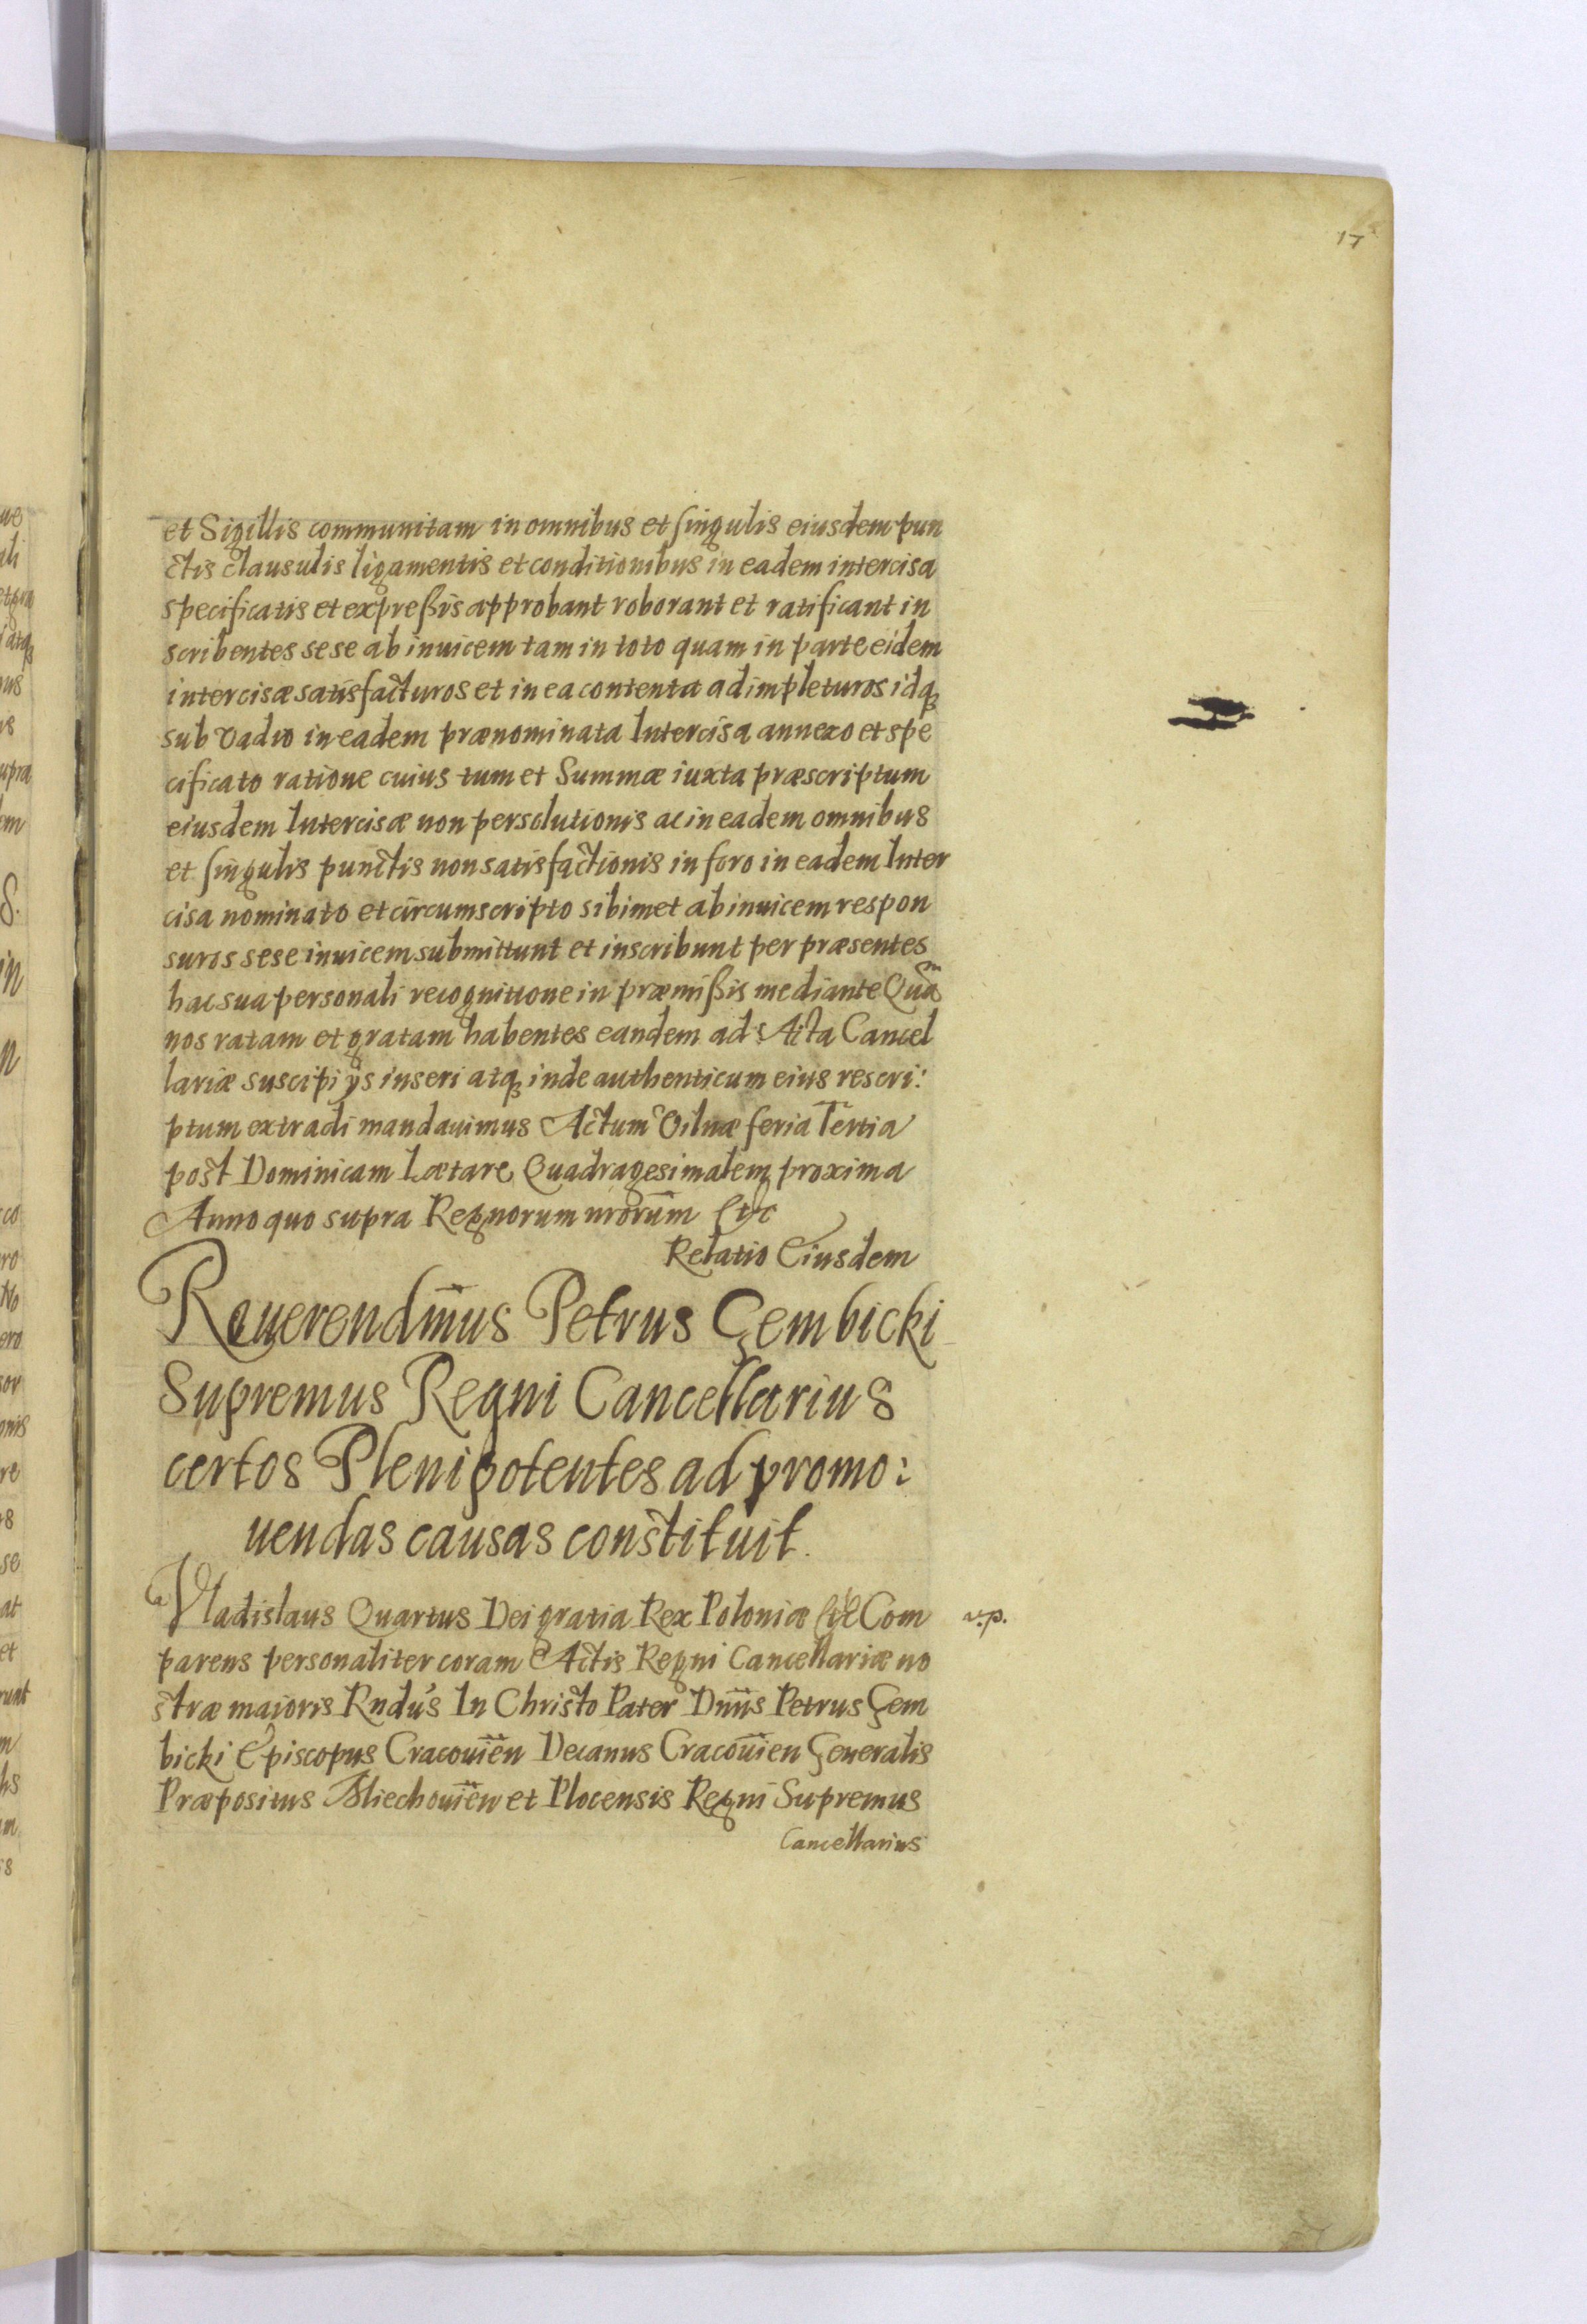 17
et Sigillis communitam in omnibus et singulis eiusdem pun
ctis clausulis ligamentis et conditionibus in eadem intercisa
specificatis et expreßis approbant roborant et ratificant in
scribentes sese ab inuicem tam in toto quam in parte eidem
intercisæ satisfacturos et in ea contenta adimpleturos idq
sub Vadio in eadem prænominata Intercisa annexo et spe
cificato ratione cuius tum et Summæ iuxta præscriptum
eiusdem Intercisæ non persolutionis ac in eadem omnibus
et singulis punctis non satisfactionis in foro in eadem Inter
cisa nominato et circumscripto sibimet ab inuicem respon
suros sese inuicem submittunt et inscribunt per præsentes
hac sua personali recognitione in præmißis mediante Quãm
nos ratam et gratam habentes eandem ad Acta Cancel
lariæ suscipi ijs inseri atq inde authenticum eius rescri:
ptum extradi mandauimus Actum Vilnæ feria Tertia
post Dominicam Lætare Quadragesimalem proxima
Anno quo supra Regnorum nrorum Etc
Relatio Eiusdem
Reuerendmus Petrus Gembicki
Supremus Regni Cancellarius
certos Plenipotentes ad promo:
uendas causas constituit.
Vladislaus Quartus Dei gratia Rex Poloniæ Etc Com
v.p.
parens personaliter coram Actis Regni Cancellariæ no
stræ maioris Rndus In Christo Pater Dnus Petrus Gem
bicki Episcopus Cracouien Decanus Cracouien Generalis
Præpositus Miechouien et Plocensis Regni Supremus
Cancellarius